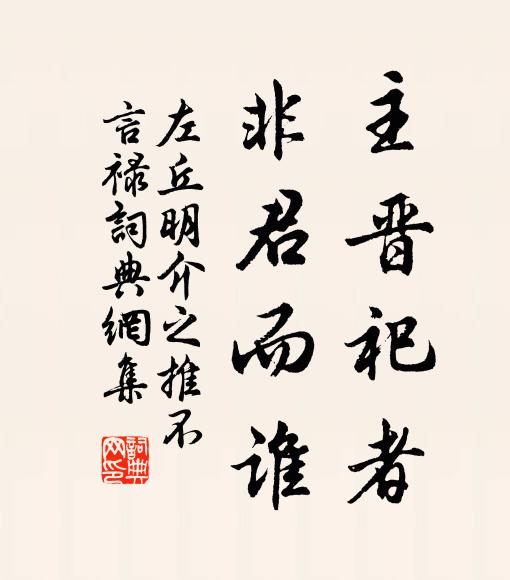 主晋祀者
非君而谁
左丘明介之推不
言禄詞典網集
詞典
网印